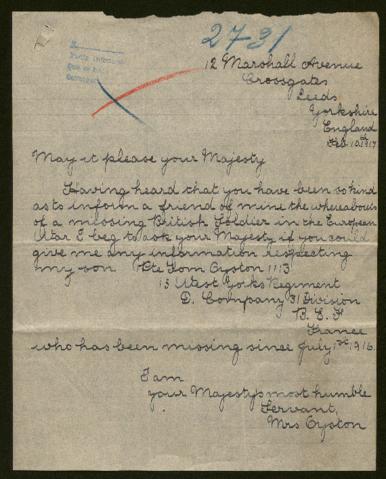 2731
12 Marshall Avenue
Crossgates
Leeds
Yorkshire
England
Feb. 10.1917
May it please your Majesty
Having heard that you have been so kind
as to inform a friend of mine the whereabouts
of a missing British Soldier in the European
War I beg to ask your Majesty if you could
give me any information respecting
my son Pte Tom Oyston 1113
15 West Yorks Regiment
D. Company 31 Division
B. E. F
France
who has been missing since July 1st 1916.
I am
your Majesty's most humble
Servant,
Mrs Oyston